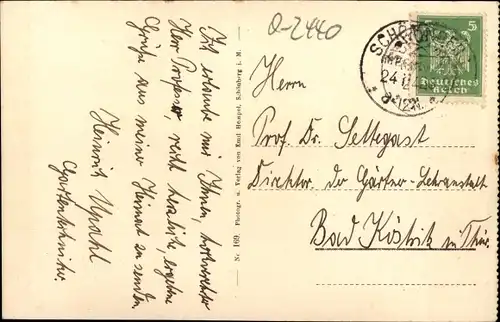 Q-2440
Ich erlaube mir Ihnen, hochverehrter
Herr Professor, recht herzliche, ergebene
Grüße aus meiner Heimat zu senden.
Heinrich
Gartentechniker.
Nr. 169. Photogr. u. Verlag von Emil Hempel, Schönberg i. M.
SCHÖNBERG
24.11.
5
Deutsches
Reich
Herrn
Prof. Dr. Settegast
Direktor der Gärtner-Lehranstalt
Bad Köstritz in Thür.